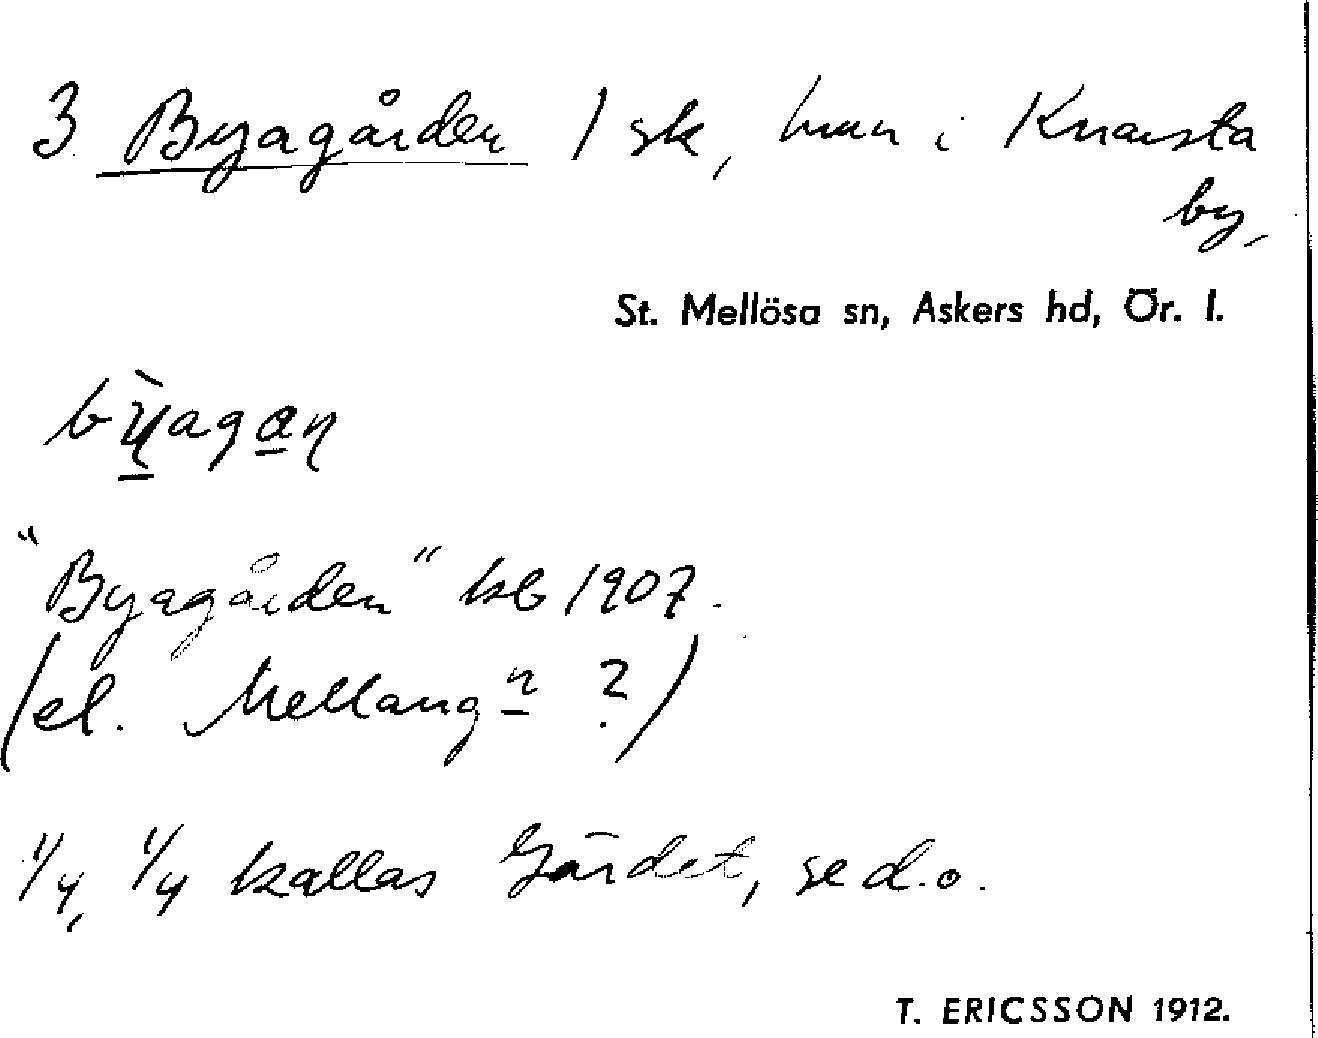 3 Byagården 1 sk, hmn i Knarsta
by,
St. Mellösa sn, Askers hd, Ör. l.
bỳagan
"Byagården" kb 1907.
(el. Mellangn ?)
1/4, 1/4 kallas Gärdet, se d.o.
T. ERICSSON 1912.